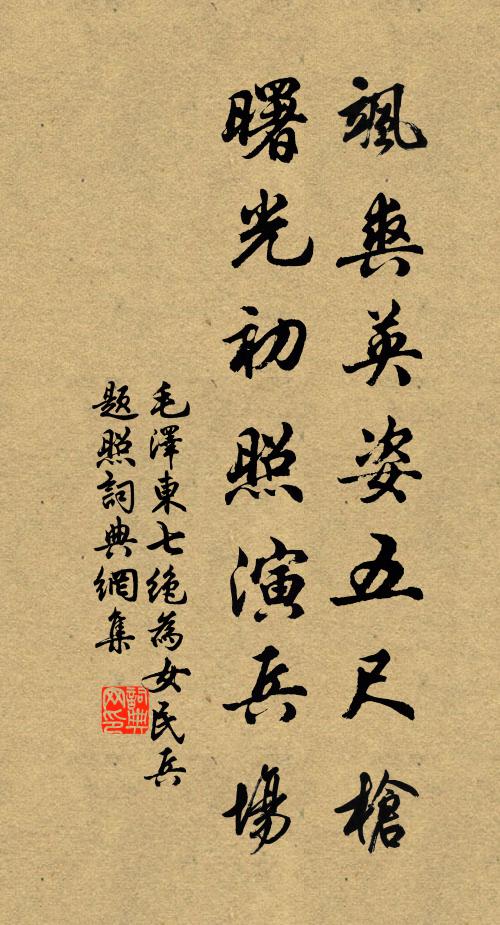 颯爽英姿五尺槍
曙光初照演兵場
毛澤東七絶為女民兵
題照詞典網集
詞典网印